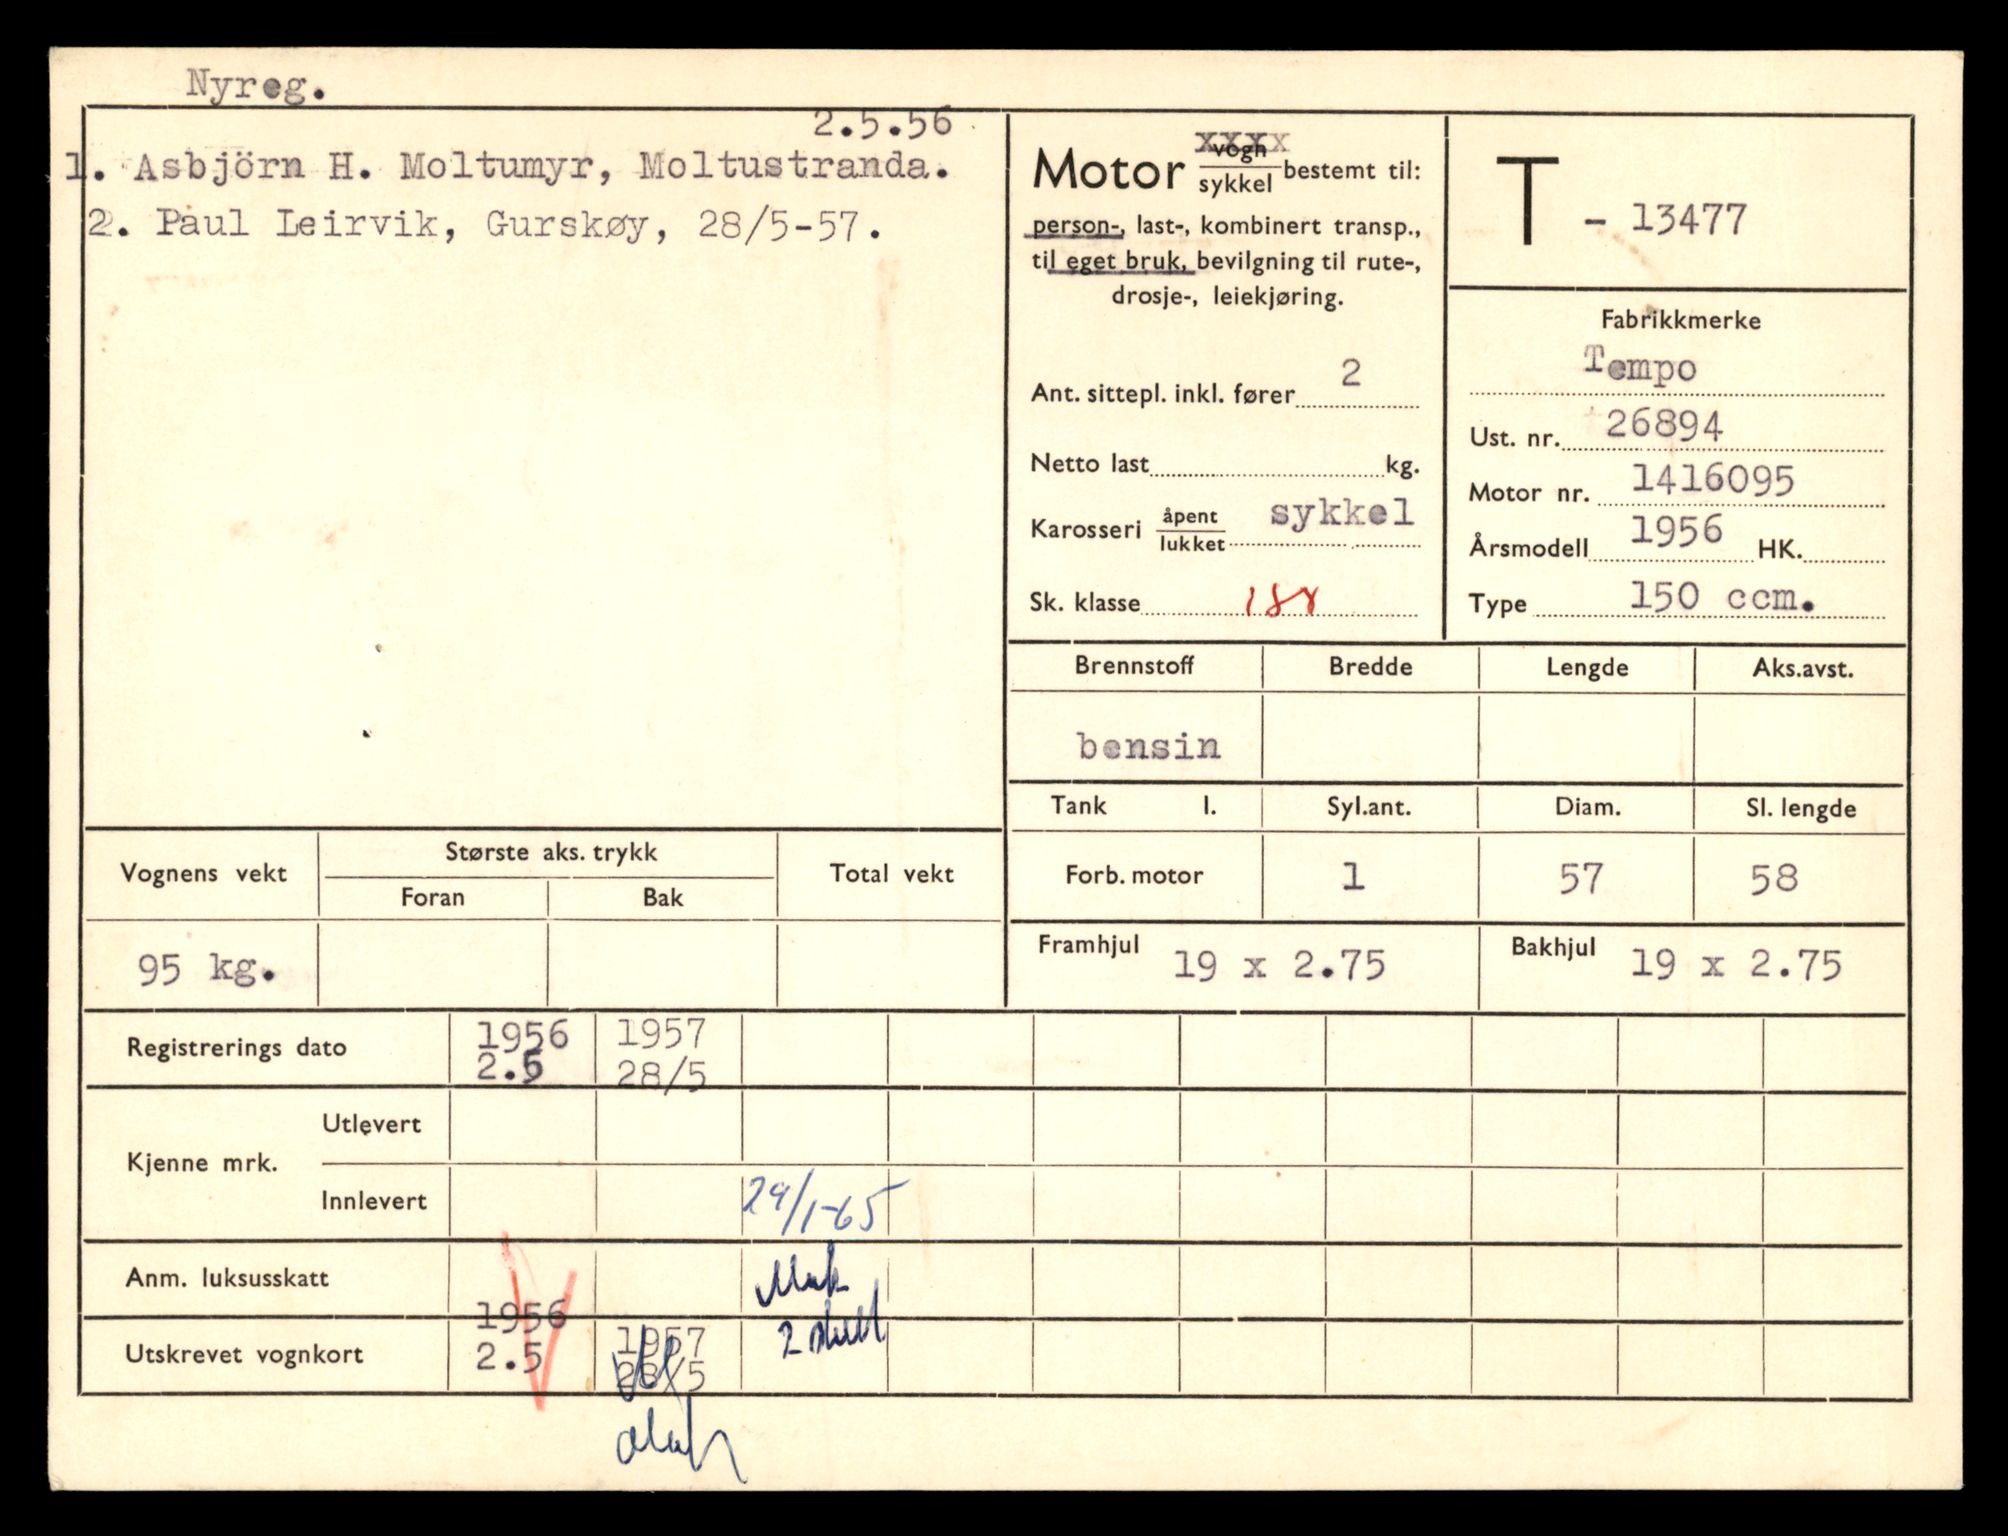 Nyreg.
2.5.56
1. Asbjörn H. Moltumyr, Moltustranda.
2. Paul Leirvik, Gurskøy, 28/5-57.
Motor vogn sykkel bestemt til:
person-, last-, kombinert transp.,
til eget bruk, bevilgning til rute-,
drosje-, leiekjøring.
Ant. sittepl. inkl. fører 2
Netto last kg.
Karosseri åpent lukket sykkel
Sk. klasse
T - 13477
Fabrikkmerke
Tempo
Ust. nr. 26894
Motor nr. 1416095
Årsmodell 1956 HK.
Type 150 ccm.
Brennstoff Bredde Lengde Aks.avst.
bensin
Tank l. Syl.ant. Diam. Sl. lengde
Forb. motor 1 57 58
Framhjul 19 x 2.75 Bakhjul 19 x 2.75
Vognens vekt Største aks. trykk Total vekt
Foran Bak
95 kg.
Registrerings dato 1956 1957
2.5 28/5
Kjenne mrk. Utlevert
Innlevert 29/1-65
Anm. luksusskatt
Utskrevet vognkort 1956 1957
2.5 28/5